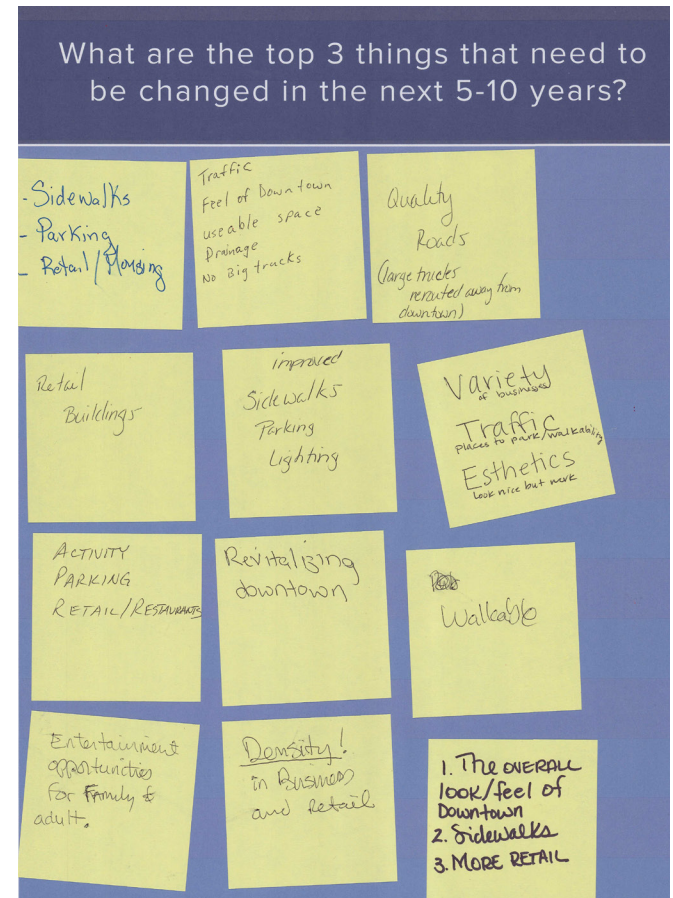 What are the top 3 things that need to
be changed in the next 5-10 years?
- Sidewalks
- Parking
- Retail/Housing
Traffic
Feel of Downtown
useable space
Drainage
No Big trucks
Quality
Roads
(large trucks
rerouted away from
downtown)
Retail
Buildings
improved
Sidewalks
Parking
Lighting
Variety
of businesses
Traffic
Places to park/walkability
Esthetics
Look nice but work
ACTIVITY
PARKING
RETAIL/RESTAURANTS
Revitalizing
downtown
Walkable
Entertainment
opportunities
for Family &
adult.
Density!
in Business
and Retail
1. The OVERALL
look/feel of
Downtown
2. Sidewalks
3. MORE RETAIL